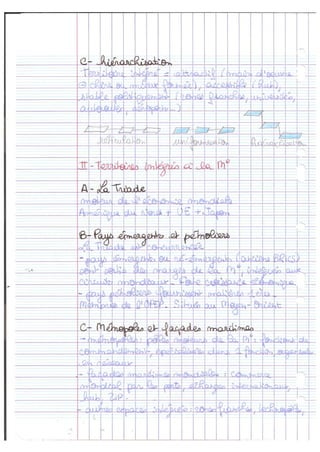 C- hiérarchisation
Territoire intégré = attractif (main d'oeuvre
⊖ chère ou mieux formée), accessible (hub),
stable politiquement (zones franches, universités,
aéroports, aéroports...)
articulation uniformisation hiérarchisation
II - Territoires intégrés à la M°
A - La Triade
moteur de l'économie mondiale
Amérique du Nord + UE + Japon
B- Pays émergents et pétroliers
La Triade est concurrencée
- pays émergents ou ré-émergents (anciens BRICS)
sont sortis des marges de la M°, intégrés aux
circuits mondiaux. Forte croissance économique
- pays pétroliers fournissent matières 1ères.
Membres de l'OPEP. Situés au Moyen-Orient
C- Métropoles et façades maritimes
- métropoles : pôles moteurs de la M° : fonctions de
commandement, spécialisées dans 1 fonction, organisées
en réseaux
- façades maritimes mondiales : commerce
mondial par les ports, échanges internationaux,
hub, ZIP.
- autres espaces intégrés : zones franches, technopôles,